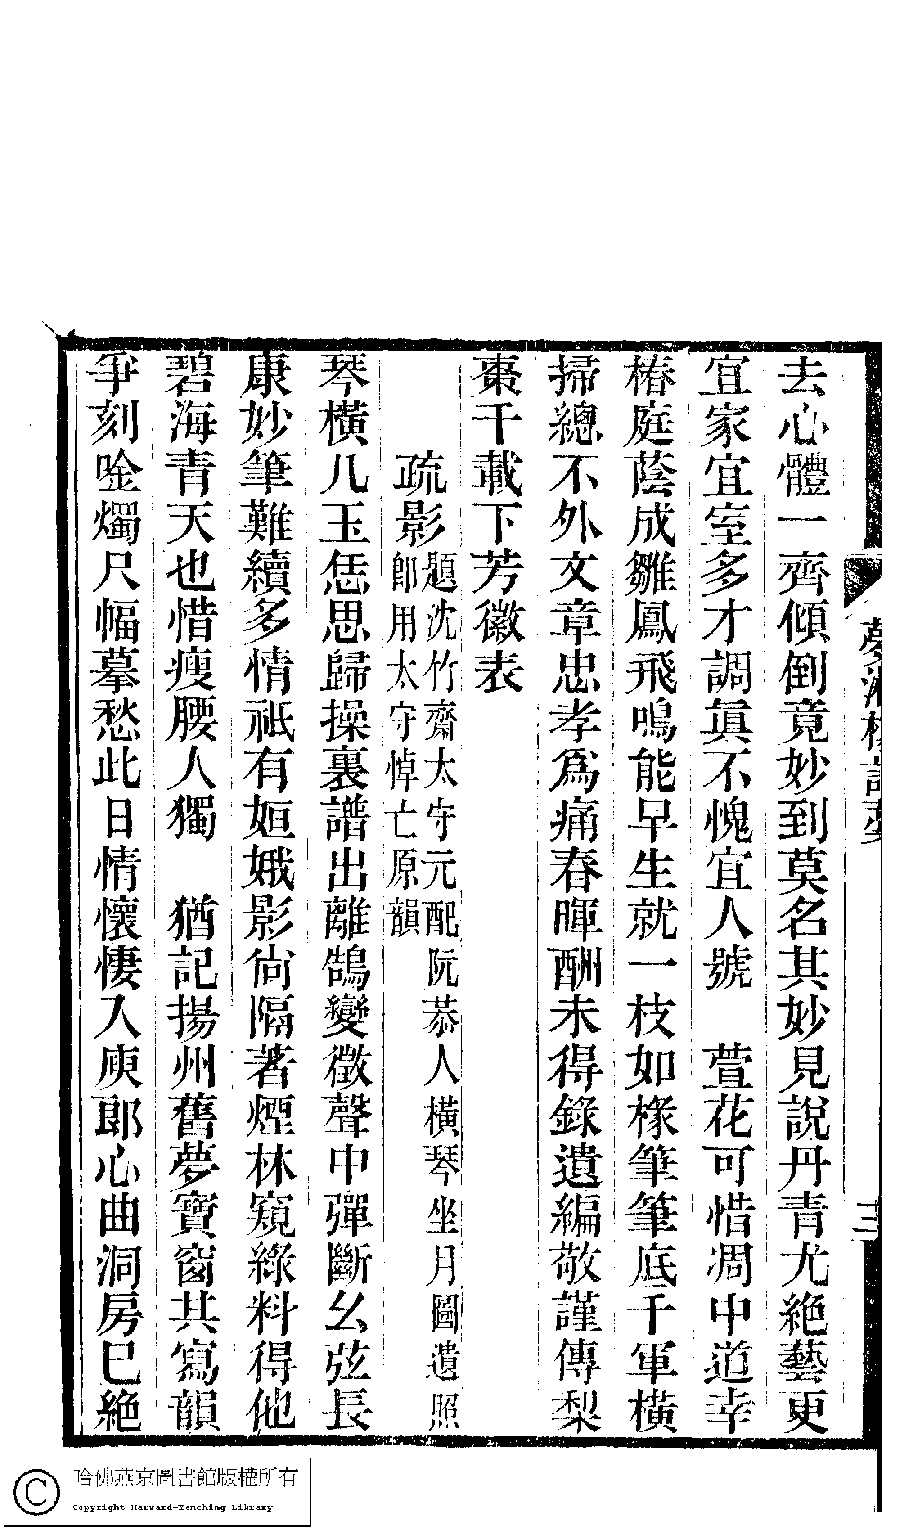 去心體一齊傾倒竟妙到莫名其妙見說丹青尤絶藝更
宜家宜室多才調眞不愧宜人號　萱花可惜凋中道幸
椿庭蔭成雛鳳飛鳴能早生就一枝如椽筆筆底千軍橫
掃總不外文章忠孝爲痛春暉酬未得錄遺編敬謹傳梨
棗千載下芳徽表
疏影題沈竹齋太守元配阮恭人橫琴坐月圖遺照
郎用太守悼亡原韻
琴橫几玉恁思歸操裏譜出離鵠變徵聲中彈斷幺弦長
康妙筆難續多情祇有姮娥影尙隔著煙林窺綠料得他
碧海青天也惜瘦腰人獨　猶記揚州舊夢寶窗共寫韻
爭刻唫燭尺幅摹愁此日情懷悽入庾郎心曲洞房已絶
夢湘樓詞
三
哈佛燕京圖書館版權所有
Copyright Harvard-Yenching Library